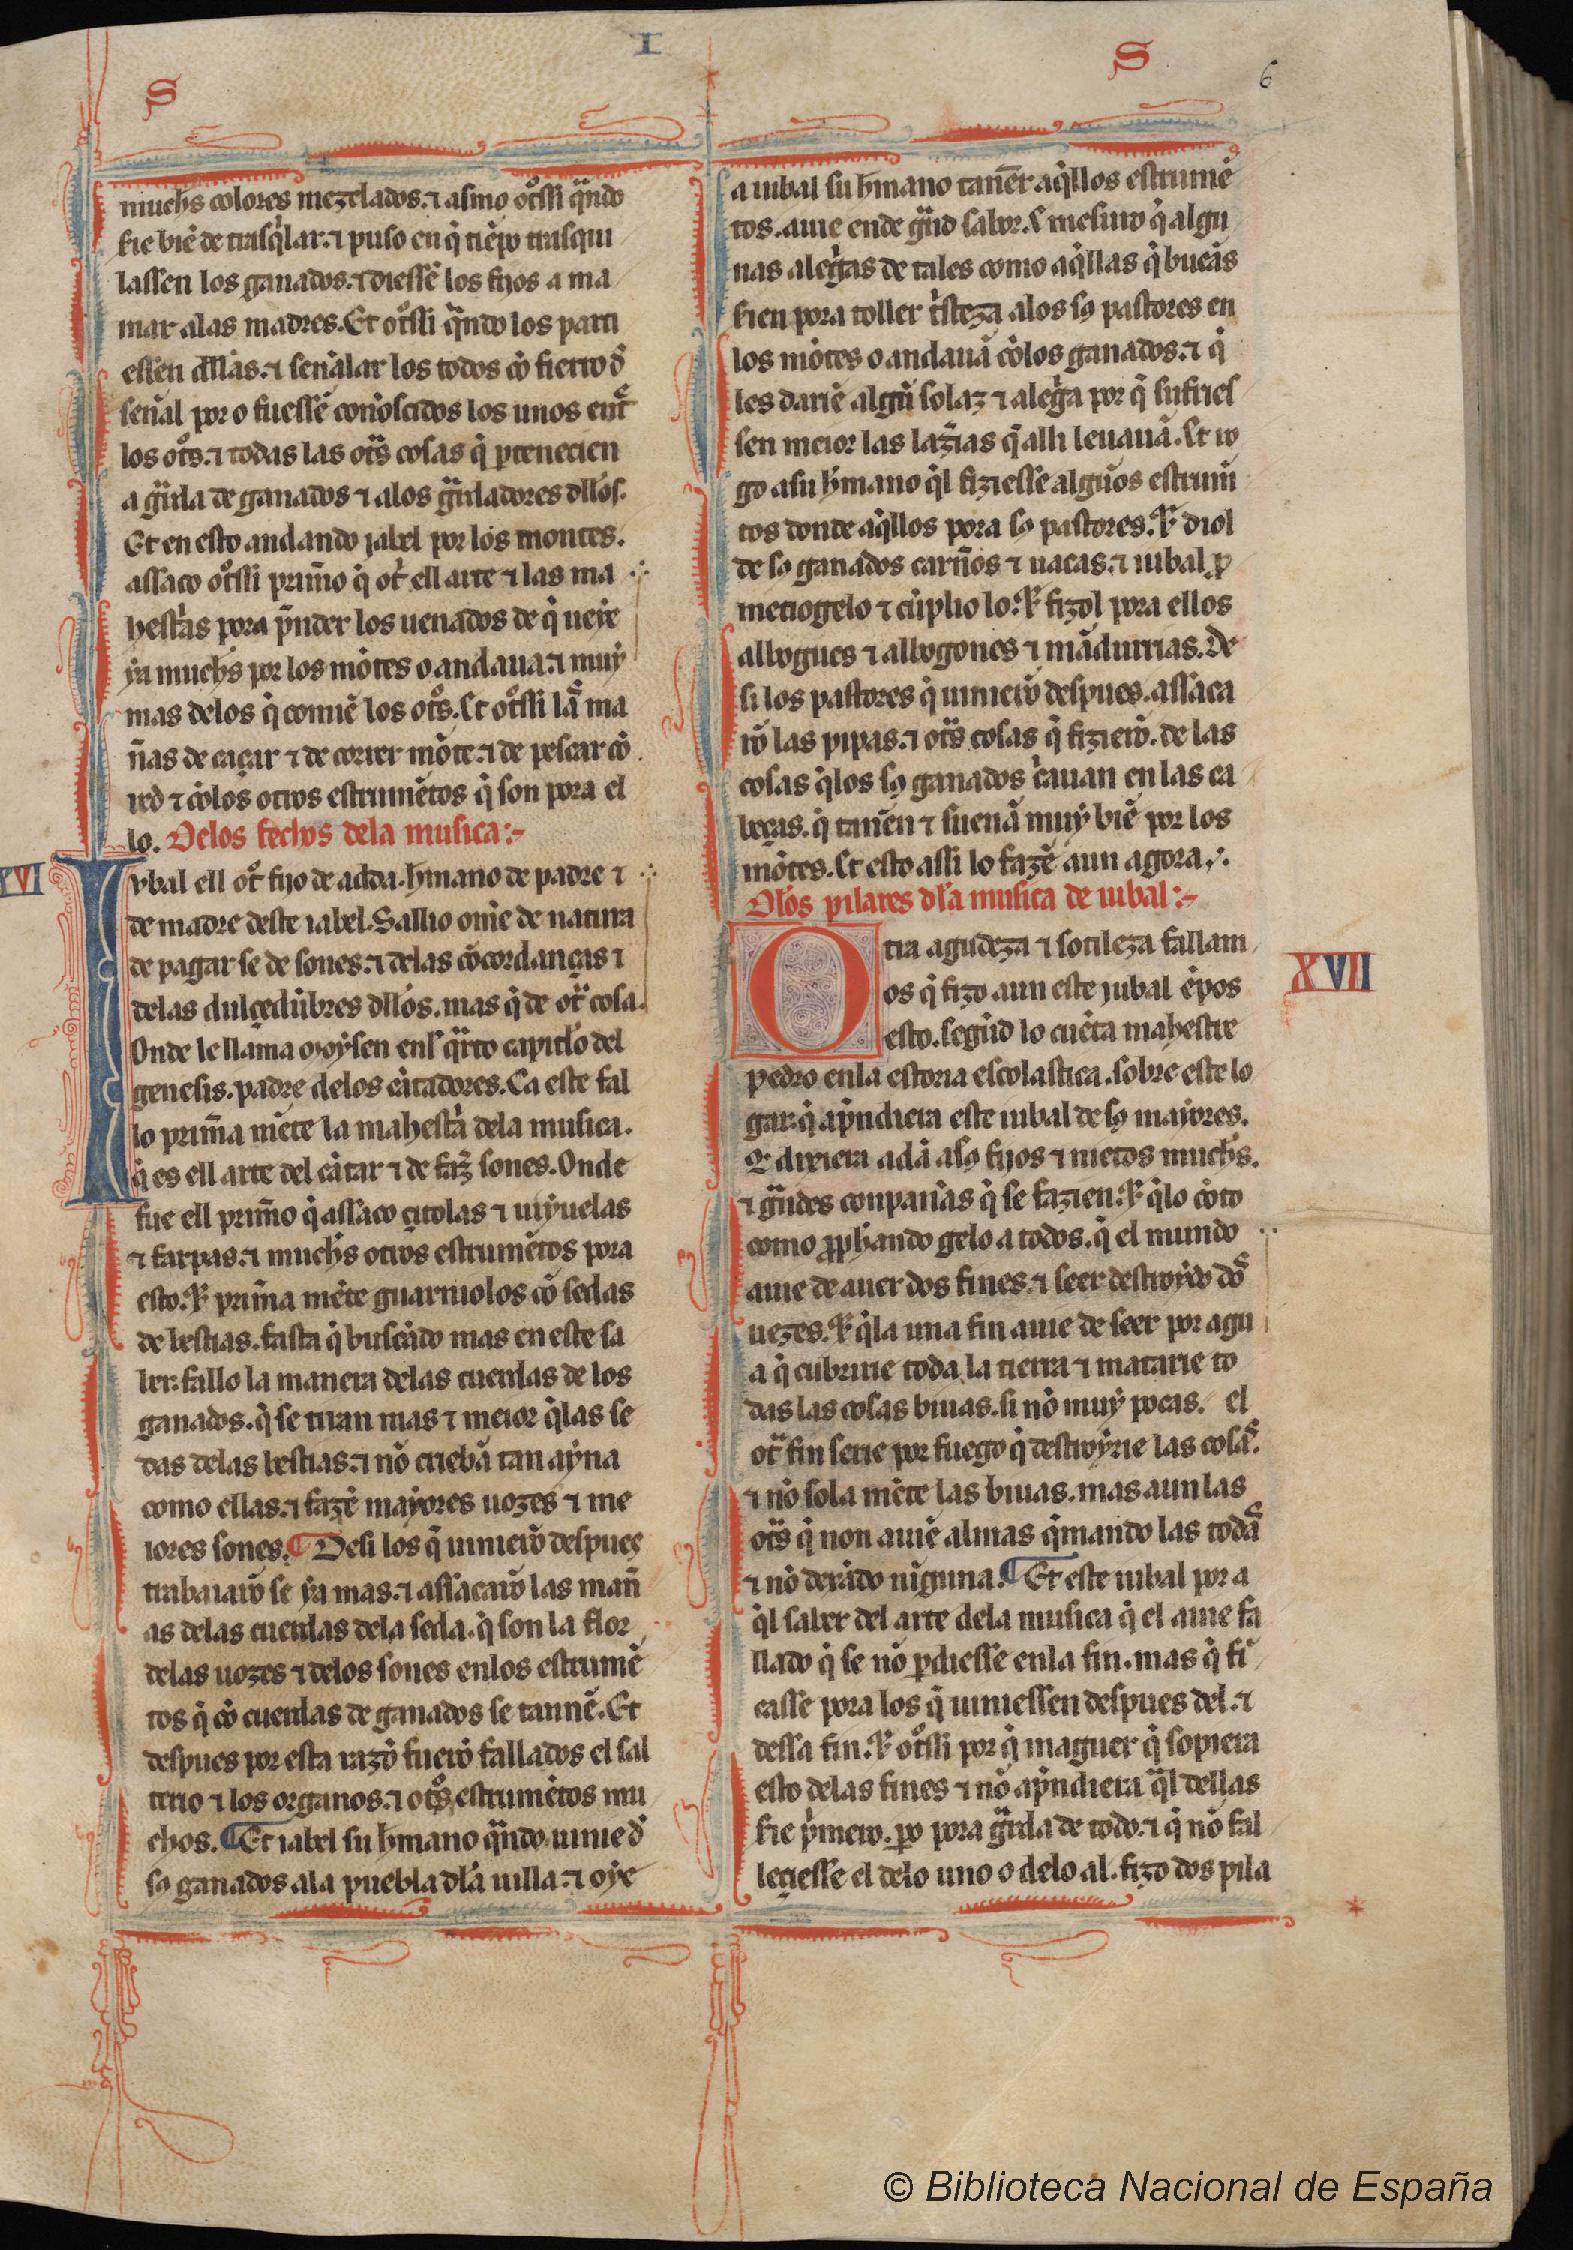 I
S
S
6
muchos colores mezclados. ⁊ asmo otrossi q̃ndo
fue biẽ de trasq̃lar. ⁊ puso en q̃ tiẽpo trasqui
lassen los ganados. ⁊ diessẽ los fijos a ma
mar alas madres. Et otrossi q̃ndo los parti
essen dellas. ⁊ señalar los todos cõ fierro d̃
señal por o fuessẽ coñoscidos los unos ent̃
los ot̃s. ⁊ todas las ot̃s cosas q̃ ꝑtenecien
a g̃rda de ganados ⁊ alos g̃rdadores dellos.
Et en esto andando jabel por los montes.
assaco ot̃ssi prim̃o q̃ ot̃ ell arte ⁊ las ma
hestrias pora p̃nder los uenados de q̃ ueye
ya muchos por los mõtes o andaua. ⁊ muy
mas delos q̃ comiẽ los ot̃s. Et ot̃ssi las ma
ñas de caçar ⁊ de correr mõte. ⁊ de pescar cõ
red ⁊ cõlos otros estrumẽtos q̃ son pora el
lo. Delos fechos dela musica:-
XVI
Iubal ell ot̃ fijo de adda. h̃mano de padre ⁊
de madre deste iabel. Sallio om̃e de natura
de pagar se de sones. ⁊ delas cõcordanças ⁊
delas dulçedũbres dellos. mas q̃ de ot̃ cosa.
Onde le llama moysen enel q̃rto capitlo del
genesis. padre delos cãtadores. Ca este fal
lo prim̃a mẽte la mahest̃a dela musica.
q̃ es ell arte del cãtar ⁊ de faz̃ sones. Onde
fue ell prim̃o q̃ assaco citolas ⁊ uiyuelas
⁊ farpas. ⁊ muchos otros estrumẽtos pora
esto. ⁊ prim̃a mẽte guarniolos cõ sedas
de bestias. fasta q̃ buscãdo mas en este sa
ber. fallo la manera delas cuerdas de los
ganados. q̃ se tiran mas ⁊ meior q̃las se
das delas bestias. ⁊ nõ criebã tan ayna
como ellas. ⁊ fazẽ mayores uozes ⁊ me
iores sones. ¶ Desi los q̃ uinierõ despues
trabaiarõ se ya mas. ⁊ assacarõ las mañ
as delas cuerdas dela seda. q̃ son la flor
delas uozes ⁊ delos sones enlos estrumẽ
tos q̃ cõ cuerdas de ganados se tannẽ. Et
despues por esta razõ fuerõ fallados el sal
terio ⁊ los organos. ⁊ ot̃s estrumẽtos mu
chos. ¶ Et iabel su h̃mano q̃ndo uinie d̃
sos ganados ala puebla dela uilla. ⁊ oye
a iubal su h̃mano tan̄er aq̃llos estrumẽ
tos. auie ende g̃nd sabor. ⁊ mesuro q̃ algu
nas aleg̃as de tales como aq̃llas q̃ bueãs
fien pora toller t̃steza alos sos pastores en
los mõtes o andauã cõlos ganados. ⁊ q̃
les dariẽ algũ solaz ⁊ aleg̃a por q̃ sufries
sen meior las laz̃ias q̃ alli leuauã. Et ro
go asu h̃mano q̃l fiziessẽ algũos estrum̃
tos donde aq̃llos pora sos pastores. ⁊ diol
de sos ganados carños ⁊ uacas. ⁊ iubal ꝓ
metiogelo ⁊ cũplio lo. ⁊ fizol pora ellos
albogues ⁊ albogones ⁊ mãdurrias. De
si los pastores q̃ uinierõ despues. assaca
rõ las pipas. ⁊ ot̃s cosas q̃ fizierõ. de las
cosas q̃los sos ganados c̃auan en las ca
beças. q̃ tañen ⁊ suenã muy biẽ por los
mõtes. Et esto assi lo fazẽ aun agora.
Delos pilares dela musica de iubal:-
XVII
Otra agudeza ⁊ sotileza fallam
os q̃ fizo aun este jubal ẽpos
esto. segũd lo cuẽta mahestre
pedro enla estoria escolastica. sobre este lo
gar. q̃ ap̃ndiera este iubal de sos mayores.
Q̃ dixiera adã asos fijos ⁊ nietos muchos.
⁊ g̃ndes conpañas q̃ se fazien. ⁊ q̃lo cõto
como ꝓph̃ando gelo a todos. q̃ el mundo
auie de auer dos fines. ⁊ seer destroydo dos
uezes. ⁊ q̃la una fin auie de seer por agu
a q̃ cubririe toda la tierra ⁊ matarie to
das las cosas biuas. si nõ muy pocas. el
ot̃ fin serie por fuego q̃ destroyrie las cosas.
⁊ nõ sola mẽte las biuas. mas aun las
ot̃s q̃ non auiẽ almas q̃mando las todas
⁊ nõ dexãdo nĩguna. ¶ Et este iubal por a
q̃l saber del arte dela musica q̃ el auie fa
llado q̃ se nõ ꝑdiesse enla fin. mas q̃ fĩ
casse pora los q̃ uiniessen despues del. ⁊
dessa fin. ⁊ ot̃ssi por q̃ maguer q̃ sopiera
esto delas fines ⁊ nõ ap̃ndiera q̃l dellas
fue p̃mero. ꝑo pora g̃rda de todo. ⁊ q̃ nõ fal
leçiesse el delo uno o delo al. fizo dos pila
© Biblioteca Nacional de España